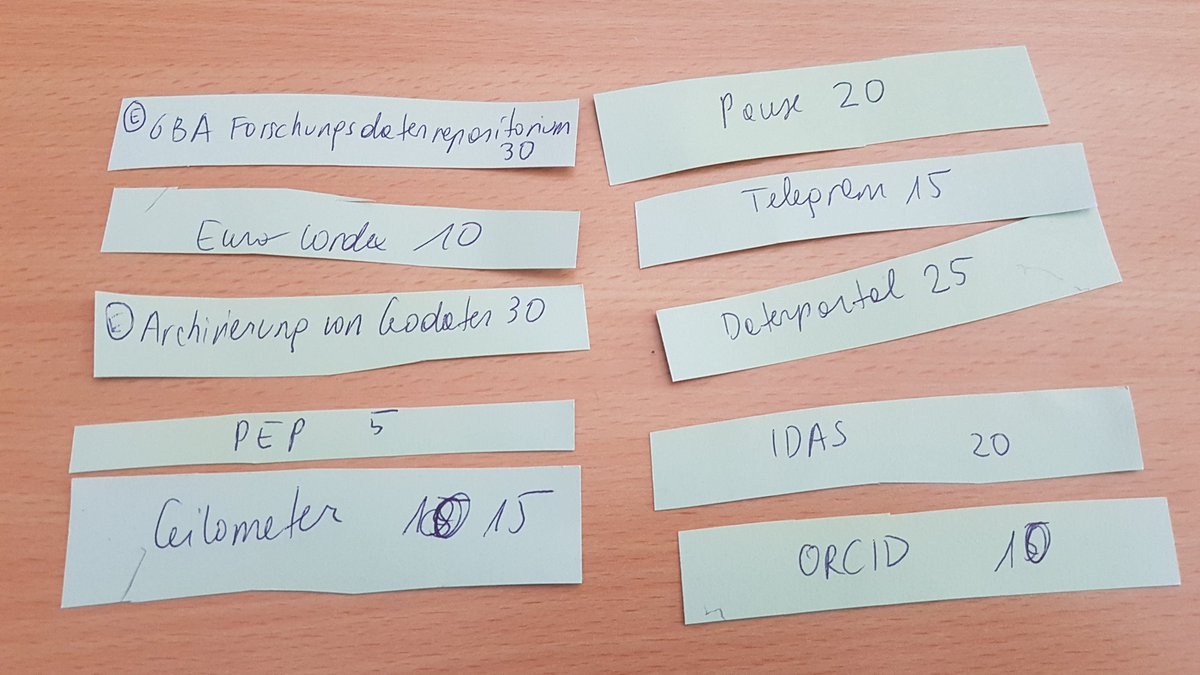 Ⓔ GBA Forschungsdatenrepositorium
30
Euro-Cordex 10
Ⓔ Archivierung von Geodaten 30
PEP 5
Ceilometer 15
Pause 20
Telegram 15
Datenportal 25
IDAS 20
ORCID 10